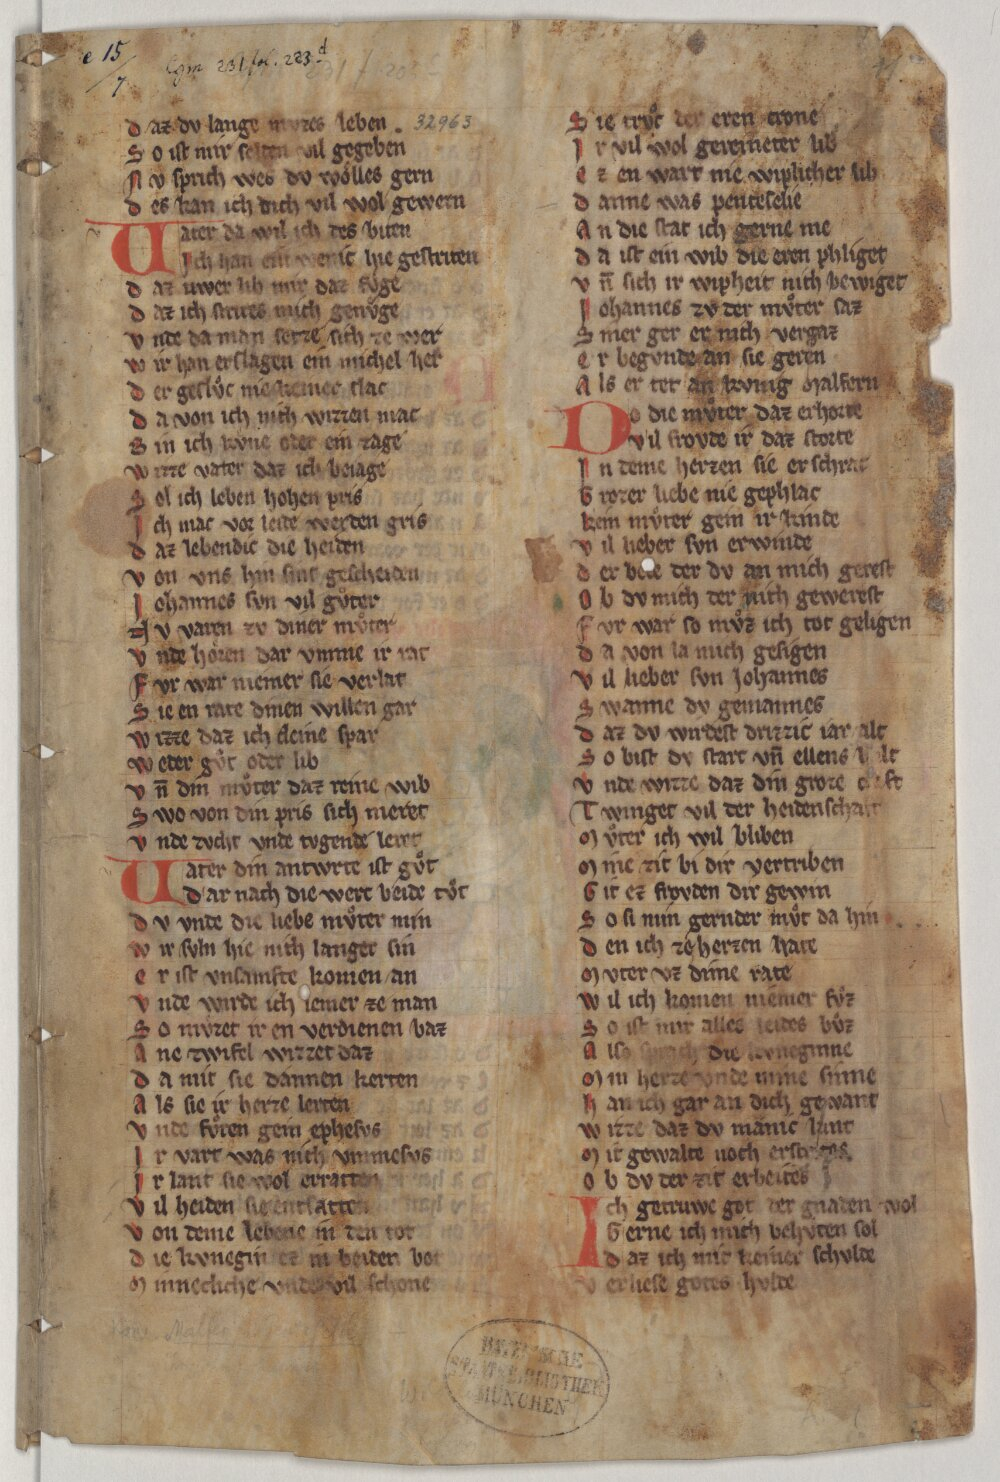 e 15/7
Cgm 231 fol. 223d
daz dv lange mvzes leben . 32963
So ist mir selten vil gegeben
Nv sprich wes dv wolles gern
des kan ich dich vil wol gewern
Vater da wil ich des biten
Ich han ein wenic hie gestriten
daz uwer lib mir daz fvͦge
daz ich strites mich genvͦge
vnde da man setze sich ze wer
wir han erslagen ein michel her
der geslvͦc nie keiner slac
da von ich nich wizzen mac
Bin ich kvne oder ein zage
wizze vater daz ich beiage
Sol ich leben hohen pris
Ich mac vor leide werden gris
daz lebendic die heiden
von vns hin sint gescheiden
Iohannes svn vil gvͦter
Nv varen zv diner mvͦter
vnde horen dar vmme ir rat
Fvr war niemer sie verlat
Sie en rate dinen willen gar
wizze daz ich cleine spar
weder gvͦt oder lib
vn̄ din mvͦter daz reine wib
Swo von din pris sich meret
vnde zvcht vnde tvgende leret
Vater din antwrte ist gvͦt
dar nach die wert beide tvͦt
dv vnde die liebe mvͦter min
wir svln hie nich langer sin
er ist vnsamfte komen an
vnde wirde ich iemer ze man
So mvzet ir en verdienen baz
Ane zwifel wizzet daz
da mit sie dannen kerten
Als sie ir herze lerten
vnde fvͦren gein ephesvs
Ir vart was nich vmmesvs
Ir lant sie wol erratten
vil heiden sie entsatten
von deme lebene in den tot
die kvnegin ez in beiden bot
Minnecliche vnde vil schone
Sie trvͦc der eren crone
Ir vil wol gereineter lib
ez en wart nie wiplicher lib
danne was penteselie
An die stat ich gerne nie
da ist ein wib die eren phliget
vn̄ sich ir wipheit nich bewiget
Iohannes zv der mvͦter saz
Siner ger er nich vergaz
er begvnde an sie geren
Als er tet an kvnig Malfern
Do die mvͦter daz erhorte
vil frovde ir daz storte
In deme herzen sie erschrac
Grozer liebe nie gephlac
kein mvͦter gein ir kinde
vil lieber svn erwinde
der bete der dv an mich gerest
Ob dv mich der nich gewerest
Fvr war so mvͦz ich tot geligen
da von la mich gesigen
vil lieber svn Iohannes
Swanne dv geniannes
daz dv wirdest drizzic iar alt
So bist dv starc vn̄ ellens balt
vnde wizze daz din groze craft
Twinget vil der heidenschaft
Mvͦter ich wil bliben
Mine zit bi dir vertriben
Git ez frovden dir gewin
So si min gernder mvͦt da hin
den ich ze herzen hate
Mvter vz dime rate
wil ich komen niemer fvͦz
So ist mir alles leides bvͦz
Also sprach die kvneginne
Min herze vnde mine sinne
han ich gar an dich gewant
wizze daz dv manic lant
Mit gewalte noch erstrites
ob dv der zit erbeites
Ich getruwe got der gnaden wol
Gerne ich mich behvten sol
daz ich mit keiner schvlde
verliese gotes hvlde
BAYERISCHE
STAATSBIBLIOTHEK
MÜNCHEN